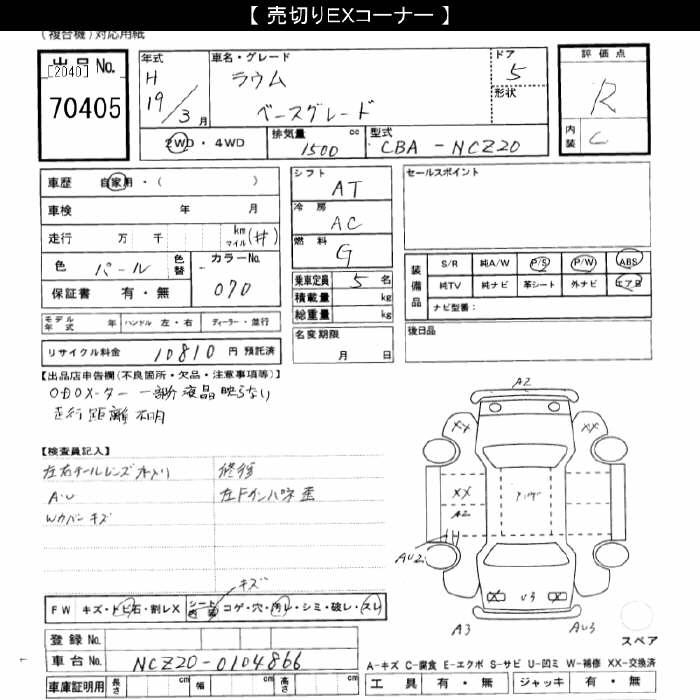 【 売切りEXコーナー 】
(複合機)対応用紙
出品No.
[2040]
70405
年式
H
19/3月
車名・グレード
ラウム
ベースグレード
ドア
5
形状
評価点
R
内装
C
2WD・4WD
排気量 cc
1500
型式
CBA - NCZ20
車歴 自家用・( )
車検 年 月
走行 万 千 km マイル (#)
色 パール 色替
カラーNo.
070
保証書 有・無
シフト
AT
冷房
AC
燃料
G
乗車定員 5 名
積載量 kg
総重量 kg
名変期限
月 日
セールスポイント
装備品
S/R 純A/W P/S P/W ABS
純TV 純ナビ 革シート 外ナビ エアB
ナビ型番：
後日品
モデル年式 年 ハンドル 左・右 ディーラー・並行
リサイクル料金 10810 円 預託済
【出品店申告欄(不良箇所・欠品・注意事項等)】
ODOメーター 一部液晶映らない
走行距離不明
【検査員記入】
左右テールレンズ
AU
Wカバーキズ
修復
左Fインパネ歪
キズ
FW キズ・トビ石・割レX シート内装 コゲ・穴・汚レ・シミ・破レ・スレ
登録No.
車台No. NCZ20-0104866
車庫証明用 長さ cm 幅 cm 高さ cm
A2
XX
XX
XX
A2
AU2
U3
A3
AU3
スペア
A-キズ C-腐食 E-エクボ S-サビ U-凹ミ W-補修 XX-交換済
工具 有・無 ジャッキ 有・無